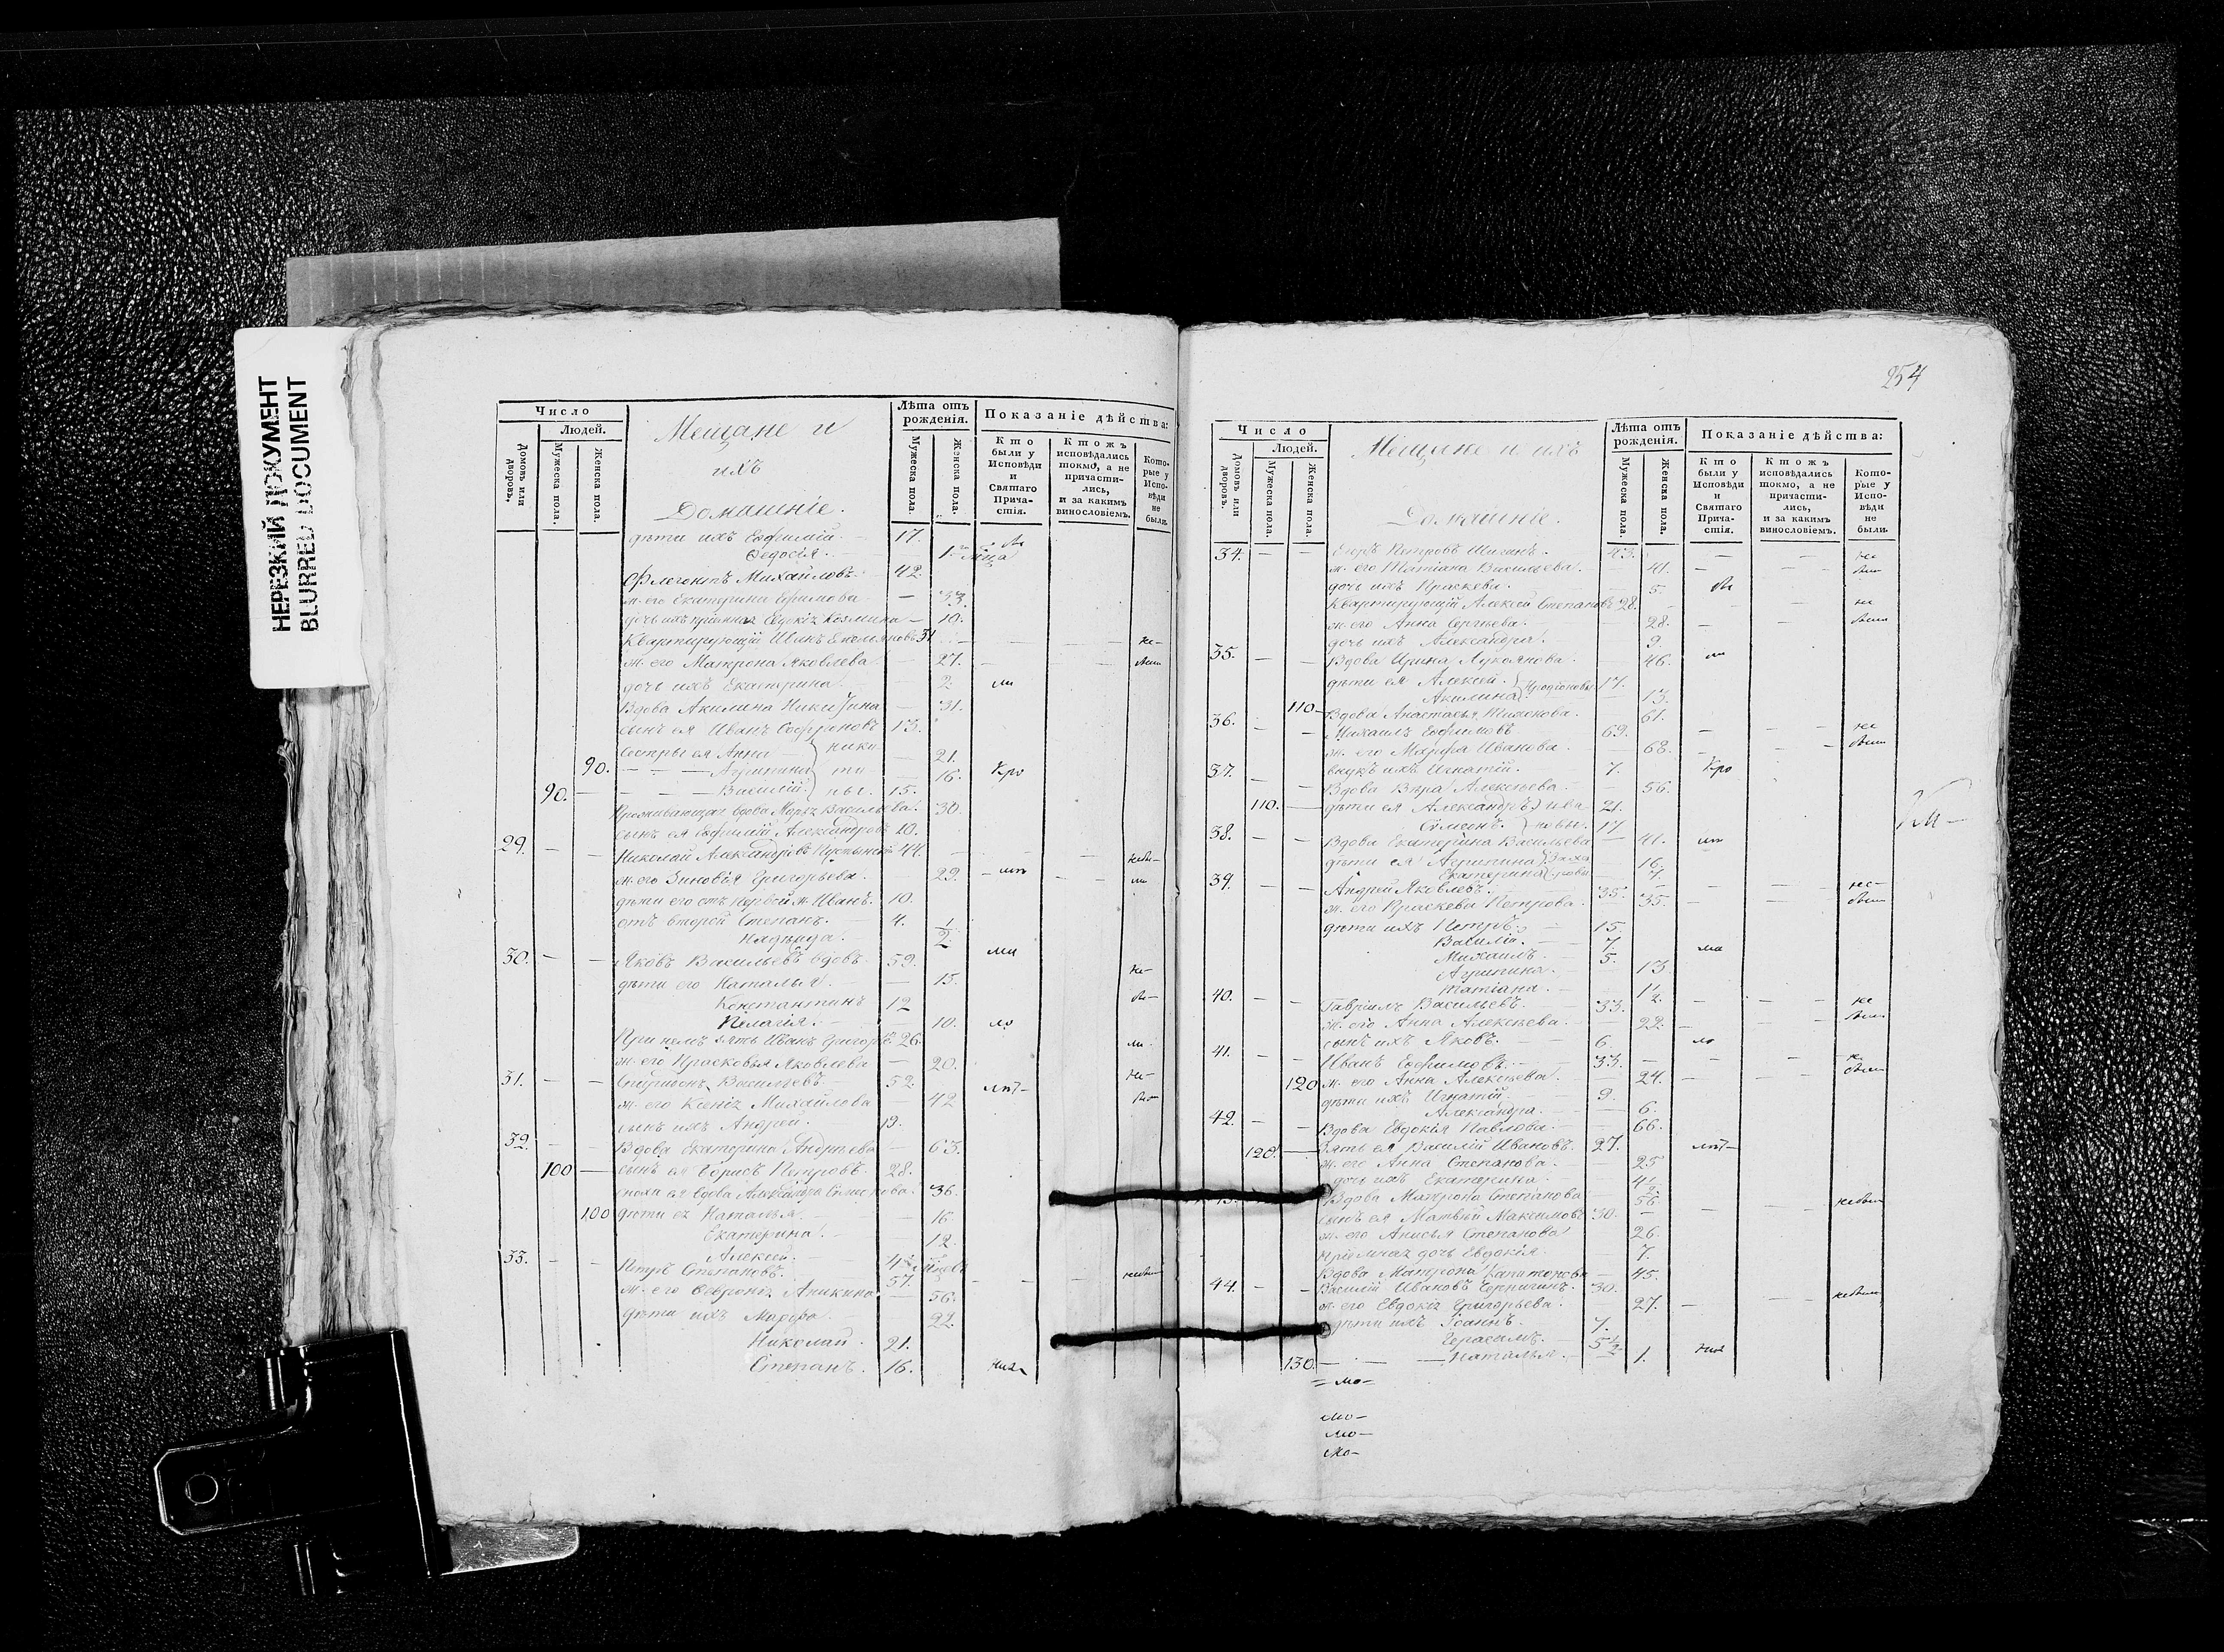 НЕРЕЗКИЙ ДОКУМЕНТ
BLURRED DOCUMENT
Число
Людей.
Домовъ или дворовъ.
Мужеска пола.
Женска пола.
Мещане и
ихъ
Домашніе.
Лѣта отъ рожденія.
Мужеска пола.
Женска пола.
Показаніе дѣйства:
Кто были у Исповѣди и Святаго Причастія.
Ктожъ исповѣдались токмо, а не причастились, и за какимъ винословіемъ.
Которые у Исповѣди не были.
дѣти ихъ Евфимій. 17.
Федосія. 1.
Флегонтъ Михайловъ. 42.
ж. его Екатерина Ефимова 33.
дочь ихъ Козмина 10.
Квартирующій Иванъ Емельяновъ 31
ж. его Матрона Яковлева 27.
дочь ихъ Екатерина 2
Вдова Акилина Никитина 31.
сынъ ея Иванъ 13.
Сестры ея Анна 21.
90. Агрипина 16.
90. Василій 15.
вдова Васильева 30
сынъ ея Евфимій Александровъ 10.
29. Николай Александровъ 44.
ж. его Зиновія Григорьева 29.
дѣти его отъ первой ж. Иванъ. 10.
отъ второй Степанъ. 4.
Надежда. 1/2
30. Яковъ Васильевъ вдовъ. 59.
дѣти его Наталья. 15.
Константинъ 12
Пелагія. 10.
зять Иванъ 26.
ж. его Прасковья Яковлева 20.
31. Спиридонъ Васильевъ 52.
ж. его Ксенія Михайлова 42
сынъ ихъ Андрей. 19.
32. Вдова Екатерина Андреева 63.
100 сынъ ея Борисъ Петровъ. 28.
вдова Александра 36.
100 дѣти ея Наталья. 16.
Екатерина. 12.
Алексей.
33. Петръ Степановъ. 57.
ж. его Февронія Аникина 56.
дѣти ихъ Марфа. 22.
Николай 21.
Степанъ. 16.
254
Число
Людей.
Домовъ или дворовъ.
Мужеска пола.
Женска пола.
Мещане и ихъ
Домашніе.
Лѣта отъ рожденія.
Мужеска пола.
Женска пола.
Показаніе дѣйства:
Кто были у Исповѣди и Святаго Причастія.
Ктожъ исповѣдались токмо, а не причастились, и за какимъ винословіемъ.
Которые у Исповѣди не были.
34. Петровъ 43.
ж. его Татіана Васильева. 41.
дочь ихъ Праскева. 5.
Квартирующій Алексей Степановъ 28.
ж. его Анна Сергѣева. 28.
дочь ихъ Александра. 9.
35. Вдова Ирина Лукоянова. 46.
дѣти ея Алексей. 17.
Акилина 13.
110 Вдова Анастасья Тихонова. 61.
36. Михаилъ Евфимовъ 69.
ж. его Марфа Иванова. 68.
внукъ ихъ Игнатій. 7.
37. Вдова Вѣра Алексѣева 56.
110. дѣти ея Александръ 21.
Симеонъ. 17
38. Вдова Екатерина Васильева 41.
дѣти ея Агрипина 16.
Екатерина 7.
39. Андрей Яковлевъ. 35.
ж. его Праскева Петрова. 35.
дѣти ихъ Петръ. 15.
Василій. 7.
Михаилъ. 5.
Агрипина. 13
Татіана. 1 1/2
40. Гавріилъ Васильевъ. 33.
ж. его Анна Алексѣева. 22.
сынъ ихъ Яковъ. 6.
41. Иванъ Евфимовъ. 33.
120 ж. его Анна Алексѣева. 24.
дѣти ихъ Игнатій. 9.
Александра. 6.
42. Вдова Евдокія Павлова. 66.
120. Зять ея Василій Ивановъ. 27.
ж. его Анна Степанова. 25
дочь ихъ Екатерина.
Вдова Матрона Степанова 56.
сынъ ея Матвѣй Максимовъ 30.
ж. его Анисья Степанова 26.
дочь Евдокія. 7.
Вдова Матрона Капитонова 45.
44. Василій Ивановъ 30.
ж. его Евдокія Григорьева. 27.
дѣти ихъ Іоаннъ. 7.
Герасимъ. 5 1/2
130. Наталья. 1.